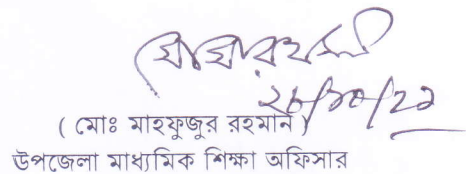 ২৮/১০/২১
( মোঃ মাহফুজুর রহমান )
উপজেলা মাধ্যমিক শিক্ষা অফিসার